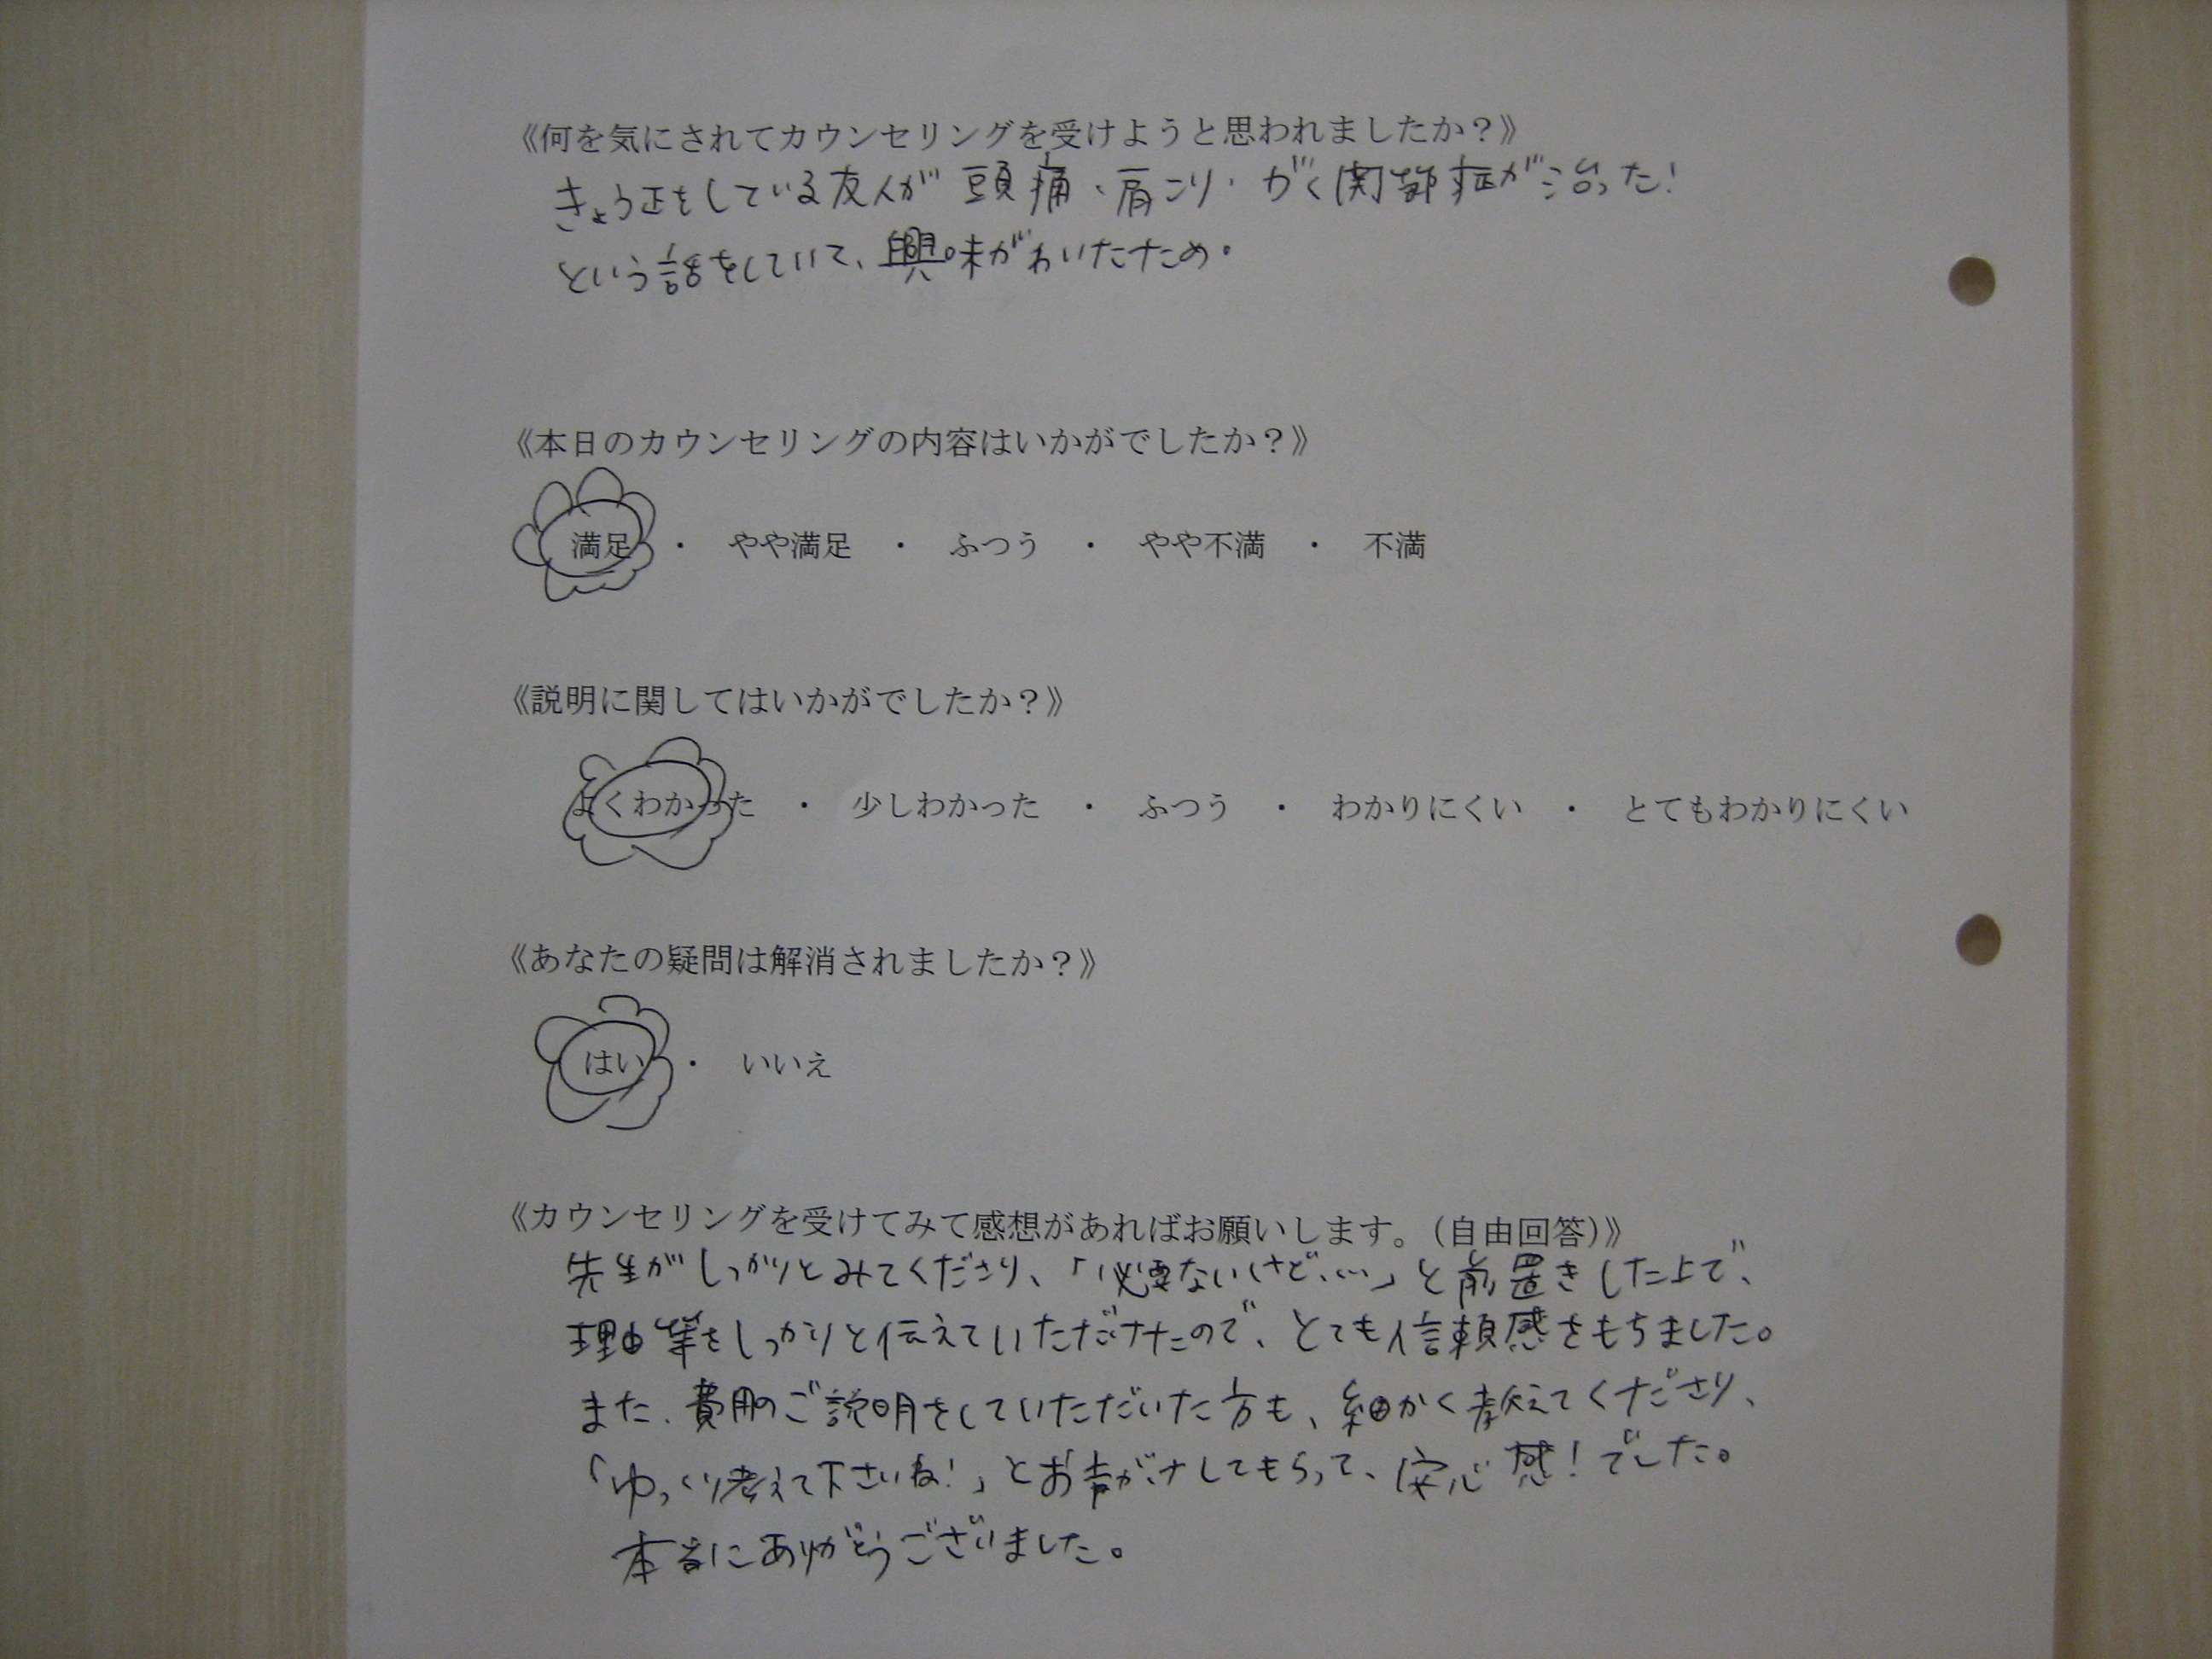 《何を気にされてカウンセリングを受けようと思われましたか？》
きょう正をしている友人が 頭痛・肩こり・がく関節症が治った！
という話をしていて、興味がわいたため。
《本日のカウンセリングの内容はいかがでしたか？》
満足 ・ やや満足 ・ ふつう ・ やや不満 ・ 不満
《説明に関してはいかがでしたか？》
よくわかった ・ 少しわかった ・ ふつう ・ わかりにくい ・ とてもわかりにくい
《あなたの疑問は解消されましたか？》
はい ・ いいえ
《カウンセリングを受けてみて感想があればお願いします。（自由回答）》
先生がしっかりとみてくださり、「必要ないけど、…」と前置きした上で、
理由等をしっかりと伝えていただけたので、とても信頼感をもちました。
また、費用のご説明をしていただいた方も、細かく教えてくださり、
「ゆっくり考えて下さいね！」とお声がけしてもらって、安心感！でした。
本当にありがとうございました。